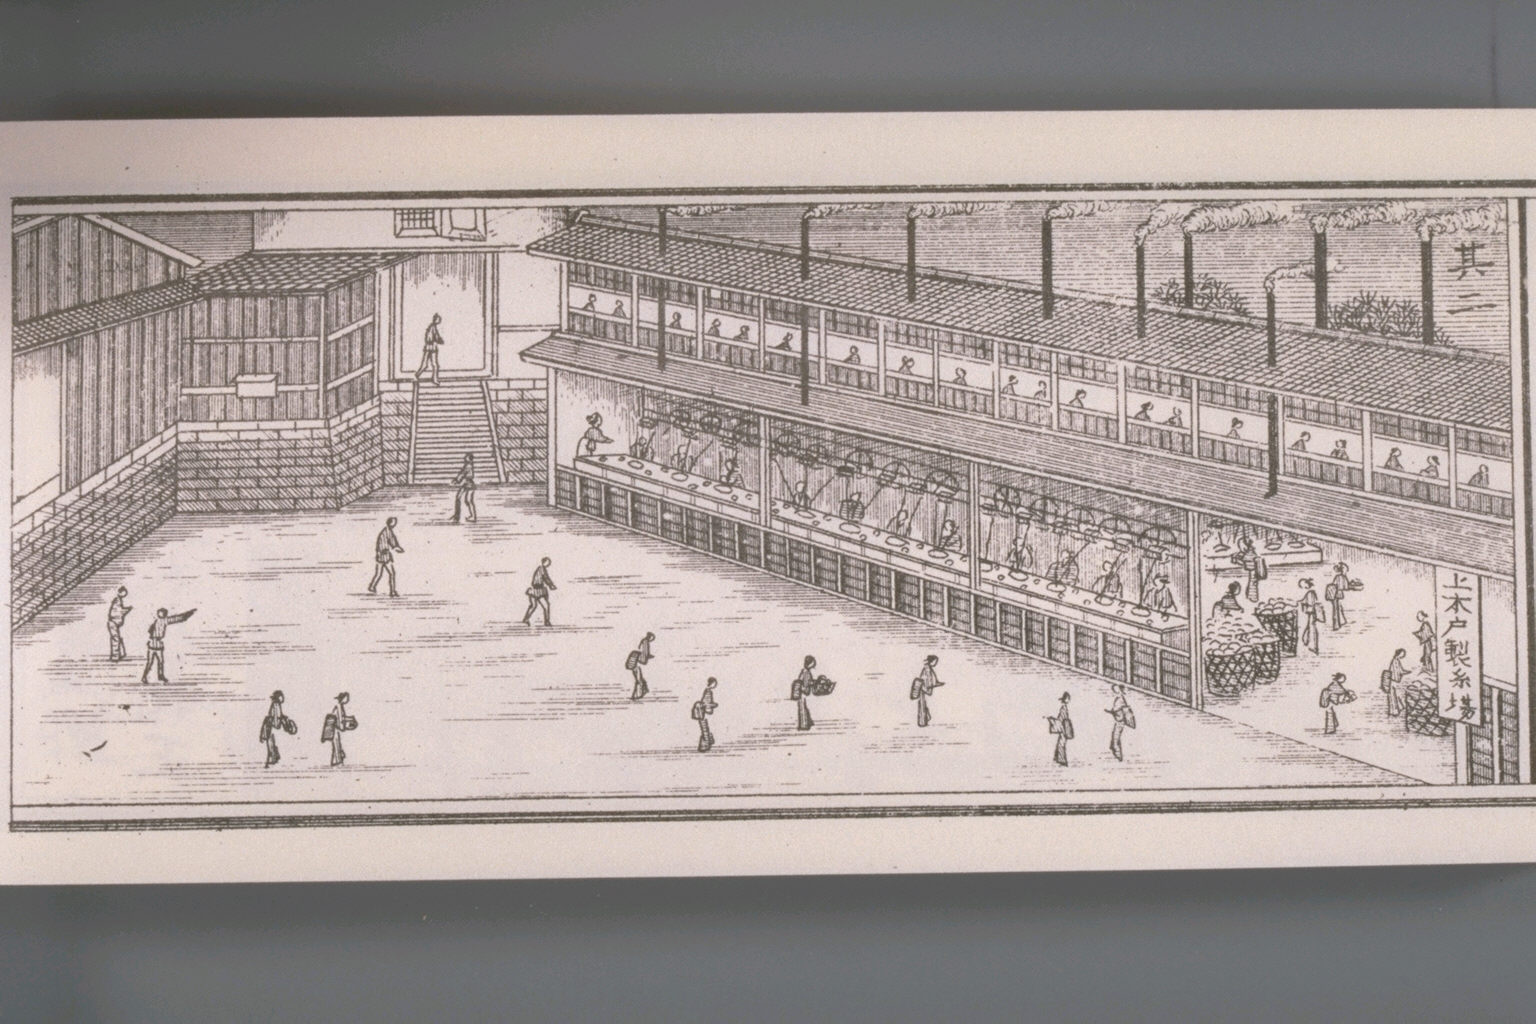 其二
上木戸製糸場